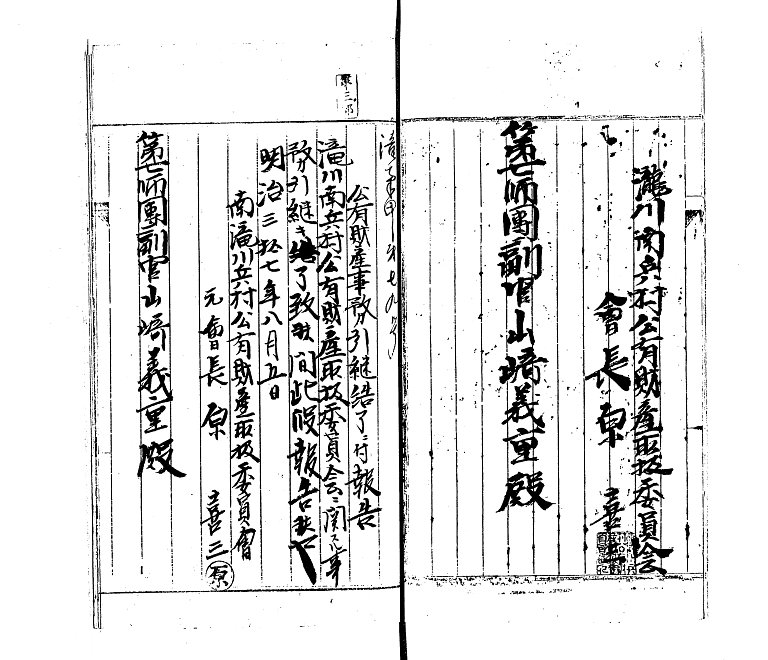 瀧川南兵村公有財産取扱委員会
會長原喜三
第七師團副官山崎義重殿
公有財産事務引継結了ニ付報告
滝川南兵村公有財産取扱委員会ニ関スル事
務引継キ結了致候間此段報告候也
明治三拾七年八月五日
南滝川兵村公有財産取扱委員會
元會長原 喜三 原
第七師團副官山崎義重殿